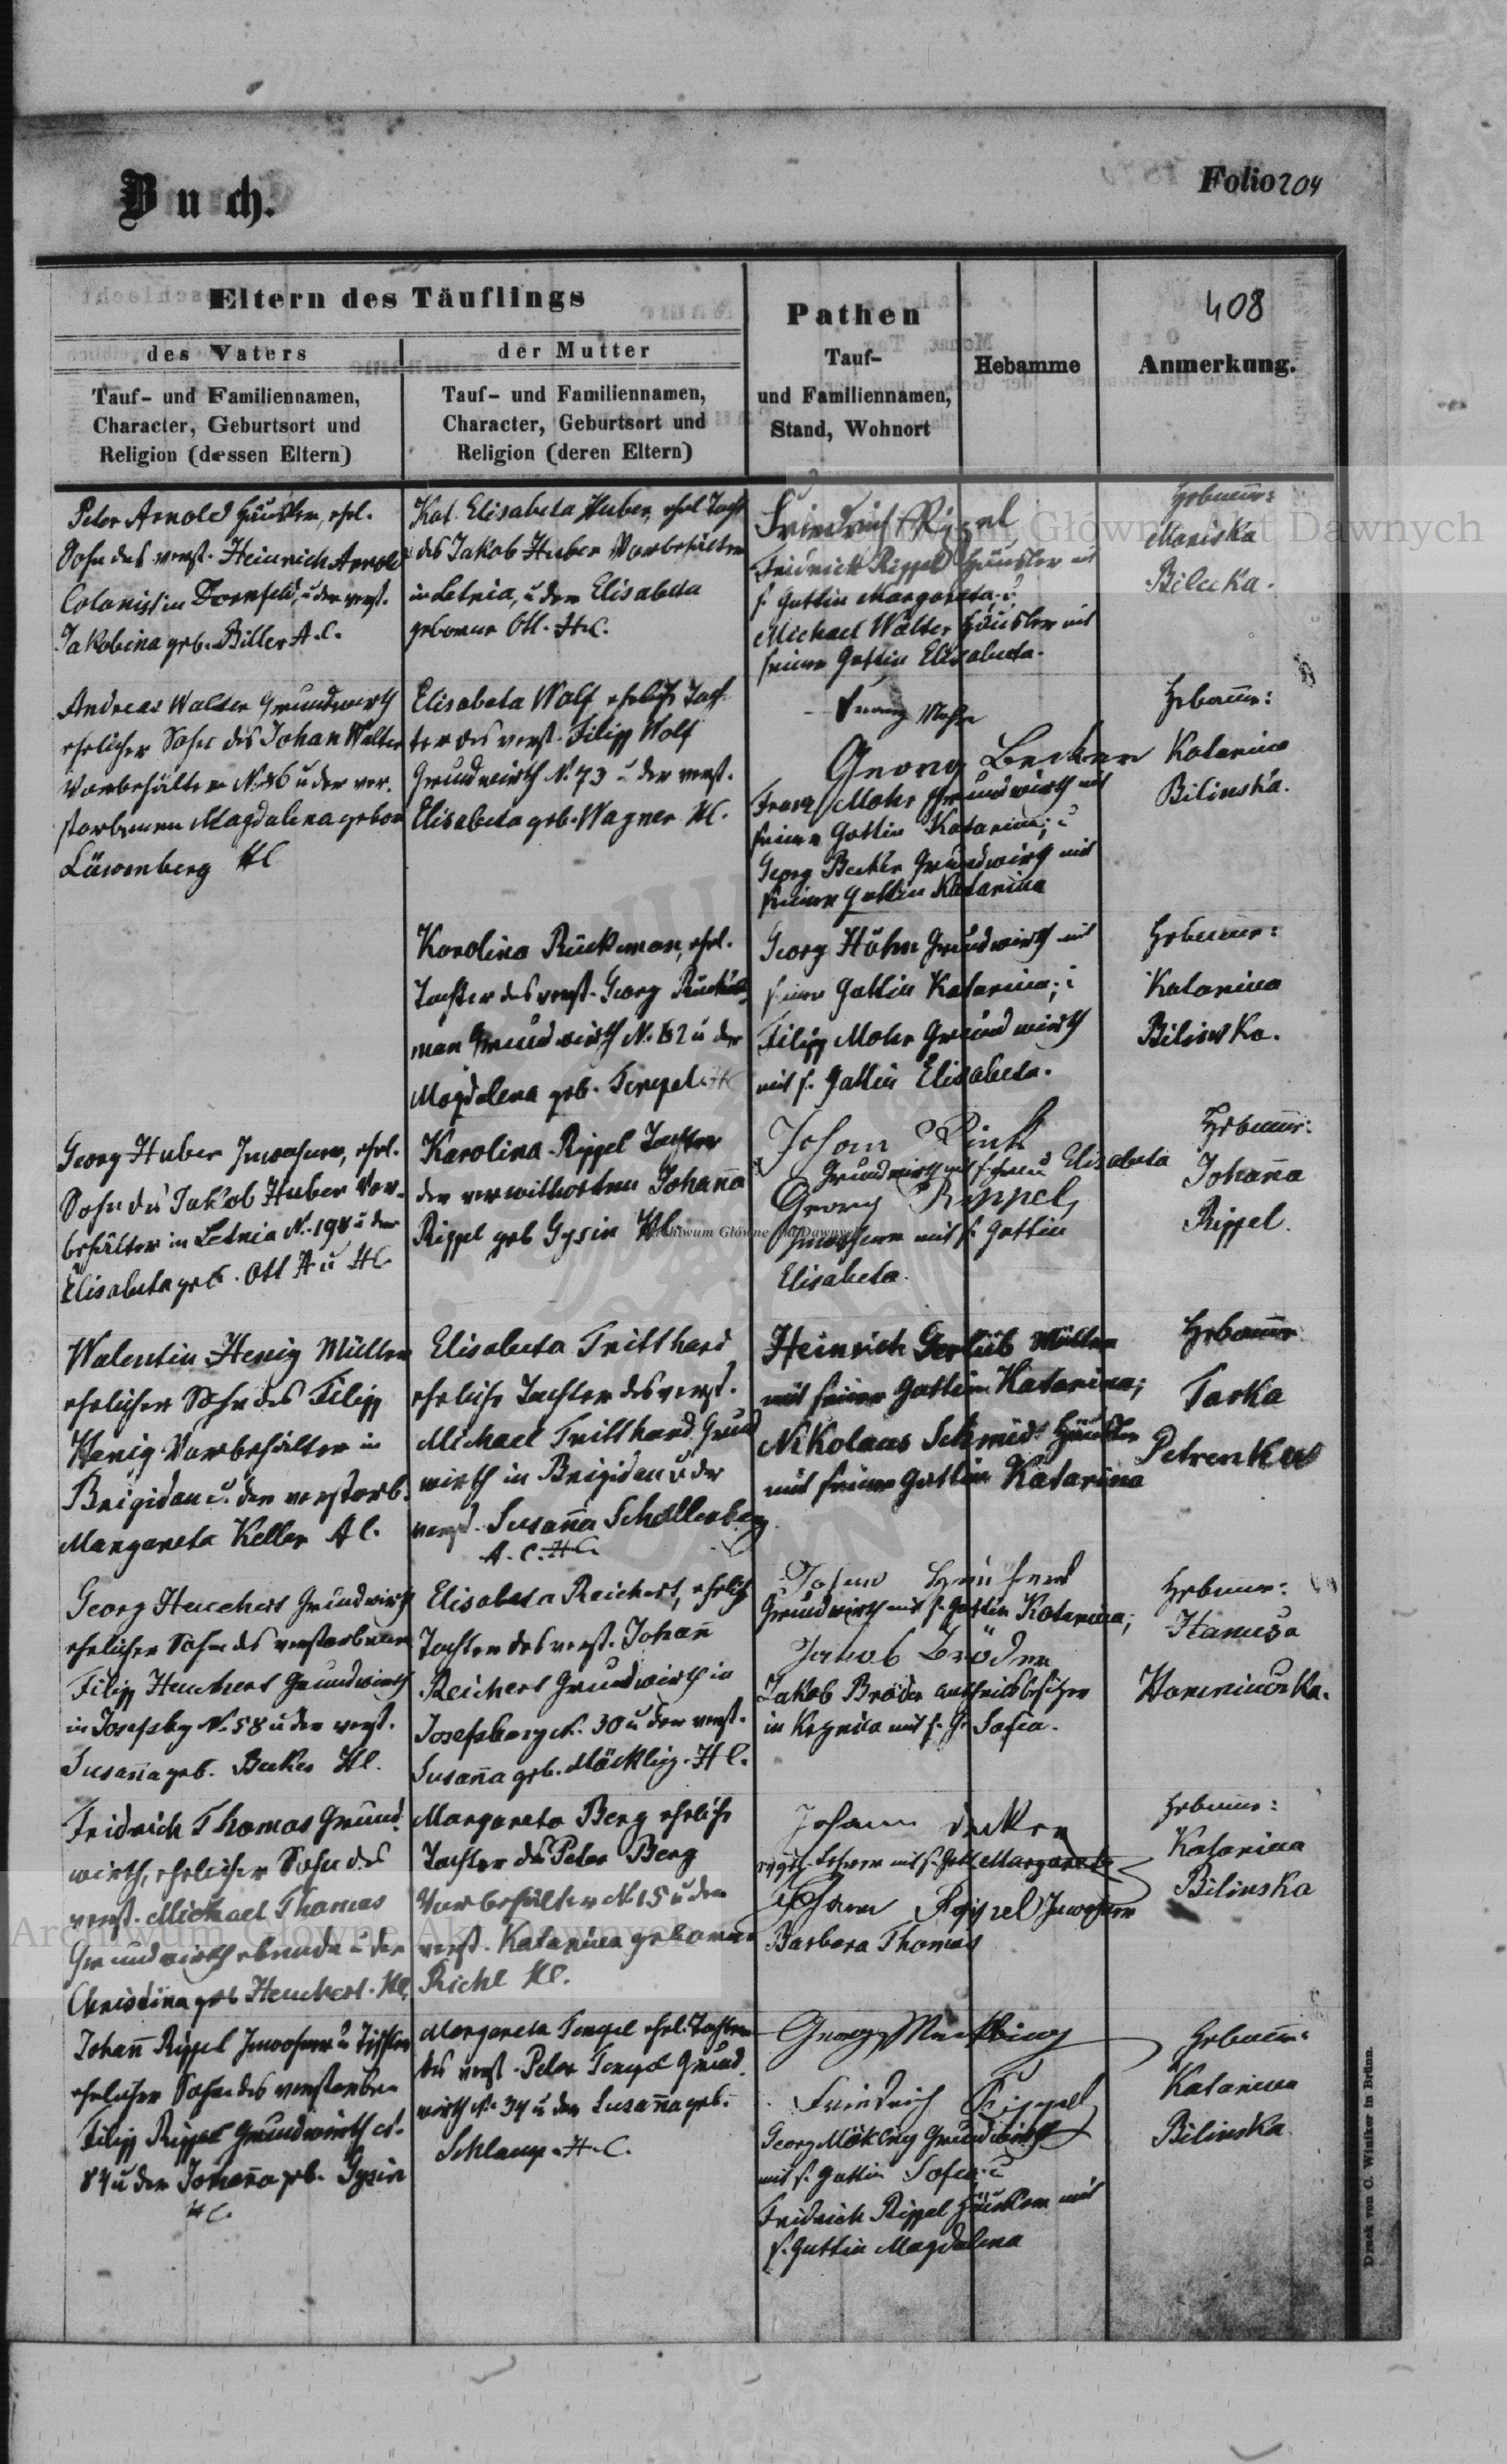 Buch.
Folio 204
408
Eltern des Täuflings
des Vaters
der Mutter
Tauf- und Familiennamen,
Character, Geburtsort und
Religion (dessen Eltern)
Tauf- und Familiennamen,
Character, Geburtsort und
Religion (deren Eltern)
Pathen
Tauf-
und Familiennamen,
Stand, Wohnort
Hebamme
Anmerkung.
Peter Arnold Häusler, ehel.
Sohn des verst. Heinrich Arnold
Colonist in Dornfeld, u der verst.
Jakobina geb. Biller A.C.
Kat. Elisabeta Huber, ehel Tocht
des Jakob Huber Vorbehälter
in Letnia, u der Elisabeta
geborene Ott. H.C.
Friedrich Rippel
Fridrich Rippel Häusler mit
s. Gattin Margareta; u
Michael Walter Häusler mit
seiner Gattin Elisabeta.
Hebamme:
Mariska
Bilecka.
Andreas Walter Grundwirth
ehelicher Sohn des Johan Walter
Vorbehälter N. 46 u der ver-
storbenen Magdalena gebor
Löwenberg HC
Elisabeta Wolf, eheliche Toch-
ter des verst. Filipp Wolf
Grundwirth N. 73 u der verst.
Elisabeta geb. Wagner HC.
Franz Mohr
Georg Becker
Franz Mohr Grundwirth mit
seiner Gattin Katarina; u
Georg Becker Grundwirth mit
seiner Gattin Katarina
Hebamme:
Katarina
Bilinska.
Karolina Rückeman, ehel.
Tochter des verst. Georg Rücke
man Grundwirth N. 62 u der
Magdalena geb. Tempel HC
Georg Höhn Grundwirth mit
seiner Gattin Katarina; u
Filipp Mohr Grundwirth
mit s. Gattin Elisabeta.
Hebamme:
Katarina
Bilinska.
Georg Huber Inwohner, ehel.
Sohn des Jakob Huber Vor-
behälter in Letnia N. 198 u der
Elisabeta geb. Ott A u HC
Karolina Rippel Tochter
der verwittweten Johanna
Rippel geb Gysin HC.
Johann Rink
Grundwirth mit s. Frau Elisabeta
Georg Rippel
Inwohner mit s. Gattin
Elisabeta.
Hebamme:
Johanna
Rippel.
Walentin Henig Müller
ehelicher Sohn des Filipp
Henig Vorbehälter in
Brigidau u. der verstorb.
Margareta Keller A C.
Elisabeta Tritthard
eheliche Tochter des verst.
Michael Tritthard Grund
wirth in Brigidau u der
verst. Susanna Schollenberg
A. C. HC.
Heinrich Gerlüb Müller
mit seiner Gattin Katarina;
Nikolaus Schmidt Häusler
mit seiner Gattin Katarina
Hebamme
Tarka
Petrenka
Georg Heuchert Grundwirth
ehelicher Sohn des verstorbenen
Filipp Heuchert Grundwirth
in Josefsbg N. 58 u der verst.
Susanna geb. Becker HC.
Elisabeta Reichert, ehelich
Tochter des verst. Johann
Reichert Grundwirth in
Josefsberg N. 30 u der verst.
Susanna geb. Möckling. H C.
Grundwirth mit s. Gattin Katarina;
Jakob Bröder
Jakob Bröder
in mit s. G. Sofia.
Hebamme:
Hanusa
Fridrich Thomas Grund-
wirth, ehelicher Sohn des
verst. Michael Thomas
Grundwirth ebenda u der
Christina geb Heuchert. HC.
Margareta Berg eheliche
Tochter des Peter Berg
Vorbehälter N. 15 u der
verst. Katarina geborene
Richl HC.
Johann Decker
Lehrer mit s. Gatt Margareta
Johann Rippel Inwohner
Barbara Thomas
Hebamme:
Katarina
Bilinska
Johann Rippel Inwohner u Tischler
ehelicher Sohn des verstorben
Filipp Rippel Grundwirth N.
84 u der Johanna geb. Gysin
HC.
Margareta Tempel ehel. Tochter
des verst. Peter Tempel Grund-
wirth N. 34 u der Susanna geb.
Schlamp. H.C.
Georg Möckling
Friedrich Rippel
Georg Möckling Grundwirth
mit s. Gattin Sofia; u
Fridrich Rippel Häusler mit
s. Gattin Magdalena
Hebamme:
Katarina
Bilinska
Druck von C. Winiker in Brünn.
Archiwum Główne Akt Dawnych
Archiwum Główne Akt Dawnych
Archiwum Główne Akt Dawnych